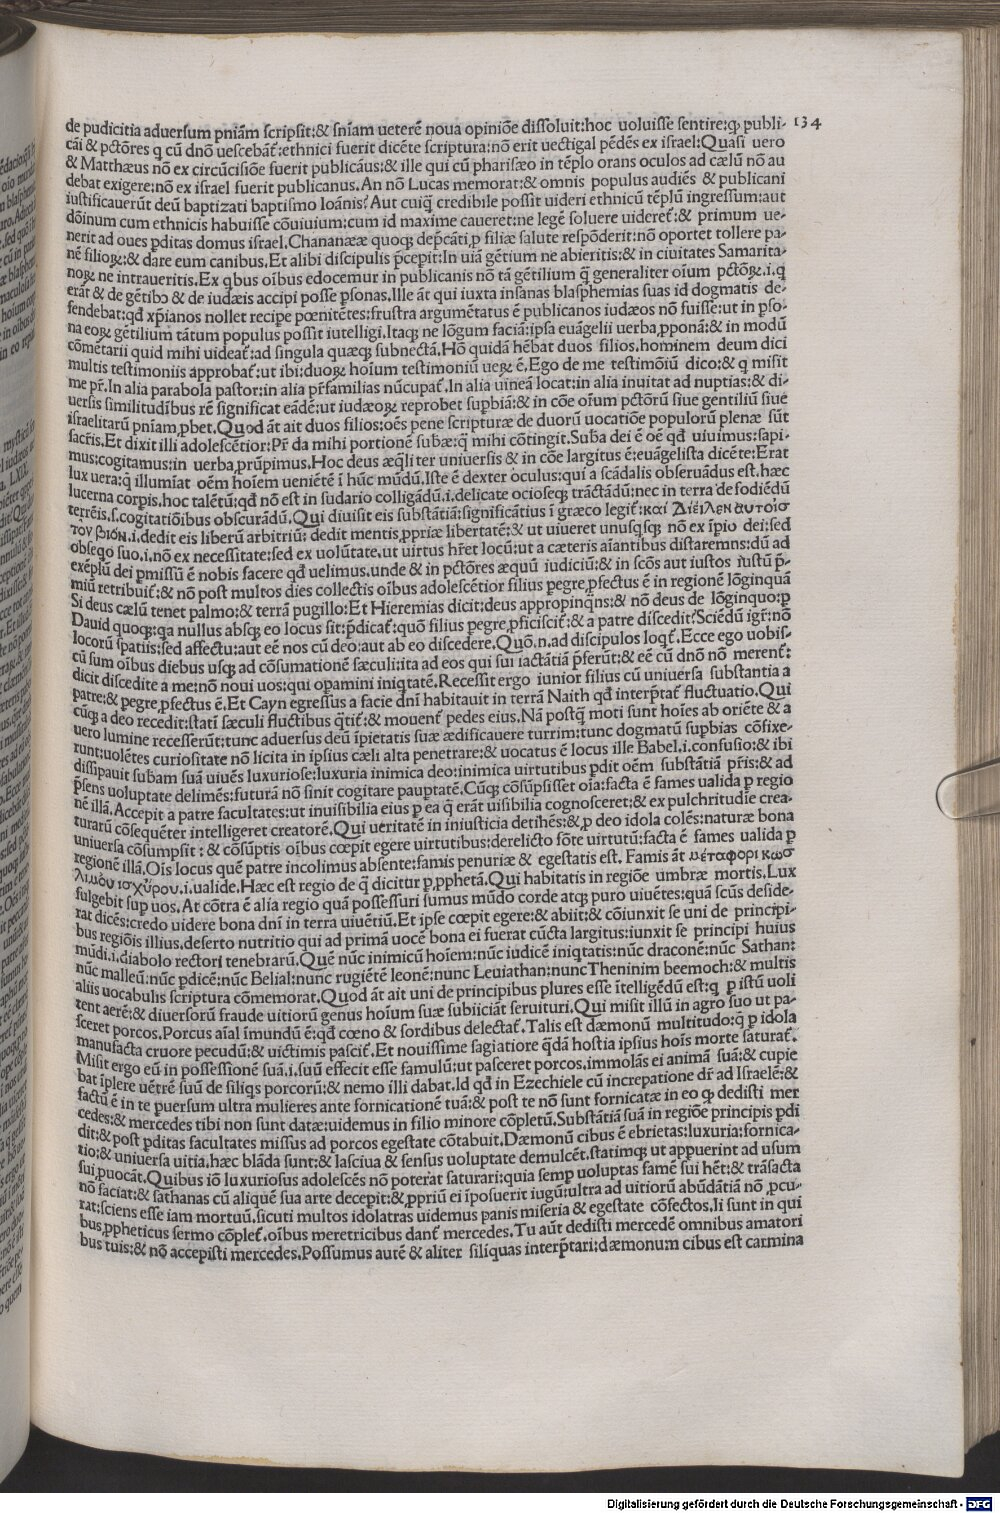 de pudicitia aduersum pniam̄ scripsit:& sniam̄ ueterē noua opiniōe dissoluit:hoc uoluisse sentire:ꝙ publi- 134
cāi & pctōres q cū dnō uescebāt᷑:ethnici fuerit dicēte scriptura:nō erit uectigal pēdēs ex israel:Quasi uero
& Matthæus nō ex circūcisiōe fuerit publicāus:& ille qui cū pharisæo in tēplo orans oculos ad cælū nō au
debat exigere:nō ex israel fuerit publicanus.An nō Lucas memorat:& omnis populus audiēs & publicani
iustificauerūt deū baptizati baptismo Ioānis?Aut cuiq̄ credibile possit uideri ethnicū tēplū ingressum:aut
dōinum cum ethnicis habuisse cōuiuium:cum id maxime caueret:ne legē soluere uideret᷑:& primum ue-
nerit ad oues ꝑditas domus israel.Chananææ quoqꝫ dep̄cāti,ꝓ filiæ salute respōderit:nō oportet tollere pa-
nē filioꝝ:& dare eum canibus.Et alibi discipulis p̄cepit:In uiā gētium ne abieritis:& in ciuitates Samarita-
noꝝ ne intraueritis.Ex qbus oībus edocemur in publicanis nō tā gētilium q̄ generaliter oīum pctōꝝ.i.q
erāt & de gētibꝰ & de iudæis accipi posse ꝑsonas.Ille āt qui iuxta insanas blasphemias suas id dogmatis de-
fendebat:qd xp̄ianos nollet recipe pœnitētes:frustra argumētatus ē publicanos iudæos nō fuisse:ut in ꝑso-
na eoꝝ gētilium tātum populus possit iutelligi.Itaqꝫ ne lōgum faciā:ipsa euāgelii uerba,ꝓponā:& in modū
cōmētarii quid mihi uideat᷑:ad singula quæqꝫ subnectā.Hō quidā hēbat duos filios,hominem deum dici
multis testimoniis approbat᷑:ut ibi:duoꝝ hoīum testimoniū ueꝝ ē.Ego de me testimōiū dico:& q misit
me pr̄.In alia parabola pastor:in alia pr̄familias nūcupat᷑.In alia uineā locat:in alia inuitat ad nuptias:& di-
uersis similitudībus rē significat eādē:ut iudæoꝝ reprobet supbiā:& in cōe oīum pctōrū siue gentiliū siue
israelitarū pniam,ꝓbet.Quod āt ait duos filios:oēs pene scripturæ de duorū uocatiōe populorū plenæ sūt
sacr̄is.Et dixit illi adolescētior:Pr̄ da mihi portionē subæ:q̄ mihi cōtingit.Suba dei ē oē qd uiuimus:sapi-
mus:cogitamus:in uerba,ꝓrūpimus.Hoc deus æq̄liter uniuersis & in cōe largitus ē:euāgelista dicēte:Erat
lux uera:q illumiat oēm hoīem ueniētē ī hūc mūdū.Iste ē dexter oculus:qui a scādalis obseruādus est.hæc
lucerna corpis.hoc talētū:qd nō est in sudario colligādū.i.delicate ocioseqꝫ trāctādū:nec in terra defodiēdū
terrēis.s.cogitatiōibus obscurādū.Qui diuisit eis substātiā:significātius ī græco legit᷑:και Διειλεν αυτοισ
τον βιον.i.dedit eis liberū arbitriū: dedit mentis,ꝓpriæ libertatē:& ut uiueret unusqsqꝫ nō ex īpio dei:sed
obseqo suo.i.nō ex necessitate:sed ex uolūtate.ut uirtus hr̄et locū:ut a cæteris aīantibus distaremns:dū ad
exēplū dei pmissū ē nobis facere qd uelimus.unde & in pctōres æquū iudiciū:& in scōs aut iustos iustū p̄-
miū retribuit᷑:& nō post multos dies collectis oībus adolescētior filius pegre,ꝓfectus ē in regionē lōginquā
Si deus cælū tenet palmo:& terrā pugillo:Et Hieremias dicit:deus appropinqns:& nō deus de lōginquo:ꝑ
Dauid quoqꝫ:qa nullus absqꝫ eo locus sit:p̄dicat᷑:quō filius pegre,ꝓficiscit᷑:& a patre discedit?Sciēdū igr̄:nō
locorū spatiis:sed affectu:aut eē nos cū deo:aut ab eo discedere.Quō.n.ad discipulos loqt᷑.Ecce ego uobis-
cū sum oībus diebus usqꝫ ad cōsumationē sæculi:ita ad eos qui sui iactātiā p̄ferūt:& eē cū dnō nō merent᷑:
dicit discedite a me:nō noui uos:qui opamini iniqtatē.Recessit ergo iunior filius cū uniuersa substantia a
patre:& pegre,ꝓfectus ē.Et Cayn egressus a facie dnī habitauit in terrā Naith qd interp̄tat᷑ fluctuatio.Qui
cūqꝫ a deo recedit:statī sæculi fluctibus q̄tit᷑:& mouent᷑ pedes eius.Nā postq̄ moti sunt hoīes ab oriēte & a
uero lumine recesserūt:tunc aduersus deū īpietatis suæ ædificauere turrim:tunc dogmatū supbias cōfixe-
runt:uolētes curiositate nō licita in ipsius cæli alta penetrare:& uocatus ē locus ille Babel.i.confusio:& ibi
dissipauit subam suā uiuēs luxuriose:luxuria inimica deo:inimica uirtutibus pdit oēm substātiā pr̄is:& ad
p̄sens uoluptate delimēs:futurā nō sinit cogitare pauptatē.Cūqꝫ cōsūpsisset oīa:facta ē fames ualida ꝑ regio
nē illā.Accepit a patre facultates:ut inuisibilia eius ꝑ ea q̄ erāt uisibilia cognosceret:& ex pulchritudīe crea-
turarū cōsequēter intelligeret creatorē.Qui ueritatē in iniusticia detihēs:&,ꝓ deo idola colēs:naturæ bona
uniuersa cōsumpsit:& cōsūptis oībus cœpit egere uirtutibus:derelicto sōte uirtutū:facta ē fames ualida ꝑ
regionē illā.Ois locus quē patre incolimus absente:famis penuriæ & egestatis est. Famis āt μεταφορικωσ
λιμου ισχυρου.i.ualide.Hæc est regio de q̄ dicitur ꝑ,ꝓphetā.Qui habitatis in regiōe umbræ mortis.Lux
fulgebit sup uos.At cōtra ē alia regio quā possessuri sumus mūdo corde atqꝫ puro uiuētes:quā scūs deside-
rat dicēs:credo uidere bona dnī in terra uiuētiū.Et ipse cœpit egere:& abiit:& cōiunxit se uni de principi-
bus regiōis illius.deserto nutritio qui ad primā uocē bona ei fuerat cūcta largitus:iunxit se principi huius
mūdi.i.diabolo rectori tenebrarū.Quē nūc inimicū hoīem:nūc iudicē iniqtatis:nūc draconē:nūc Sathan:
nūc malleū:nūc pdicē:nūc Belial:nunc rugiētē leonē:nunc Leuiathan:nunc Theninim beemoch:& multis
aliis uocabulis scriptura cōmemorat.Quod āt ait uni de principibus plures esse ītelligēdū est:q ꝑ istū uoli
tent aerē:& diuersorū fraude uitiorū genus hoīum suæ subiiciāt seruituri.Qui misit illū in agro suo ut pa-
sceret porcos.Porcus aīal īmundū ē:qd cœno & sordibus delectat᷑.Talis est dæmonū multitudo:q̄ ꝑ idola
manufacta cruore pecudū:& uictimis pascit᷑.Et nouissime sagiatiore qdā hostia ipsius hoīs morte saturat᷑.
Misit ergo eū in possessionē suā.i.suū effecit esse famulū:ut pasceret porcos.immolās ei animā suā:& cupie
bat īplere uētrē suū de siliqs porcorū:& nemo illi dabat.Id qd in Ezechiele cū increpatione dr̄ ad Israelē:&
factū ē in te puersum ultra mulieres ante fornicationē tuā:& post te nō sunt fornicatæ in eo ꝙ dedisti mer
cedes:& mercedes tibi non sunt datæ:uidemus in filio minore cōpletū.Substātiā suā in regiōe principis pdi
dit:& post pditas facultates missus ad porcos egestate cōtabuit.Dæmonū cibus ē ebrietas:luxuria:fornica-
tio:& uniuersa uitia.hæc blāda sunt:& lasciua & sensus uoluptate demulcēt.statimqꝫ ut appuerint ad usum
sui puocāt.Quibus iō luxuriosus adolescēs nō poterat saturari:quia semp uoluptas famē sui hēt:& trāsacta
nō faciat:& sathanas cū aliquē sua arte decepit:&,ꝓpriū ei īposuerit iugū:ultra ad uitiorū abūdātiā nō ,ꝓcu-
rat:sciens esse iam mortuū.sicuti multos idolatras uidemus panis miseria & egestate cōfectos.Ii sunt in qui
bus,ꝓpheticus sermo cōplet᷑.oībus meretricibus dant᷑ mercedes.Tu aūt dedisti mercedē omnibus amatori
bus tuis:& nō accepisti mercedes.Possumus autē & aliter siliquas interp̄tari:dæmonum cibus est carmina
Digitalisierung gefördert durch die Deutsche Forschungsgemeinschaft - DFG